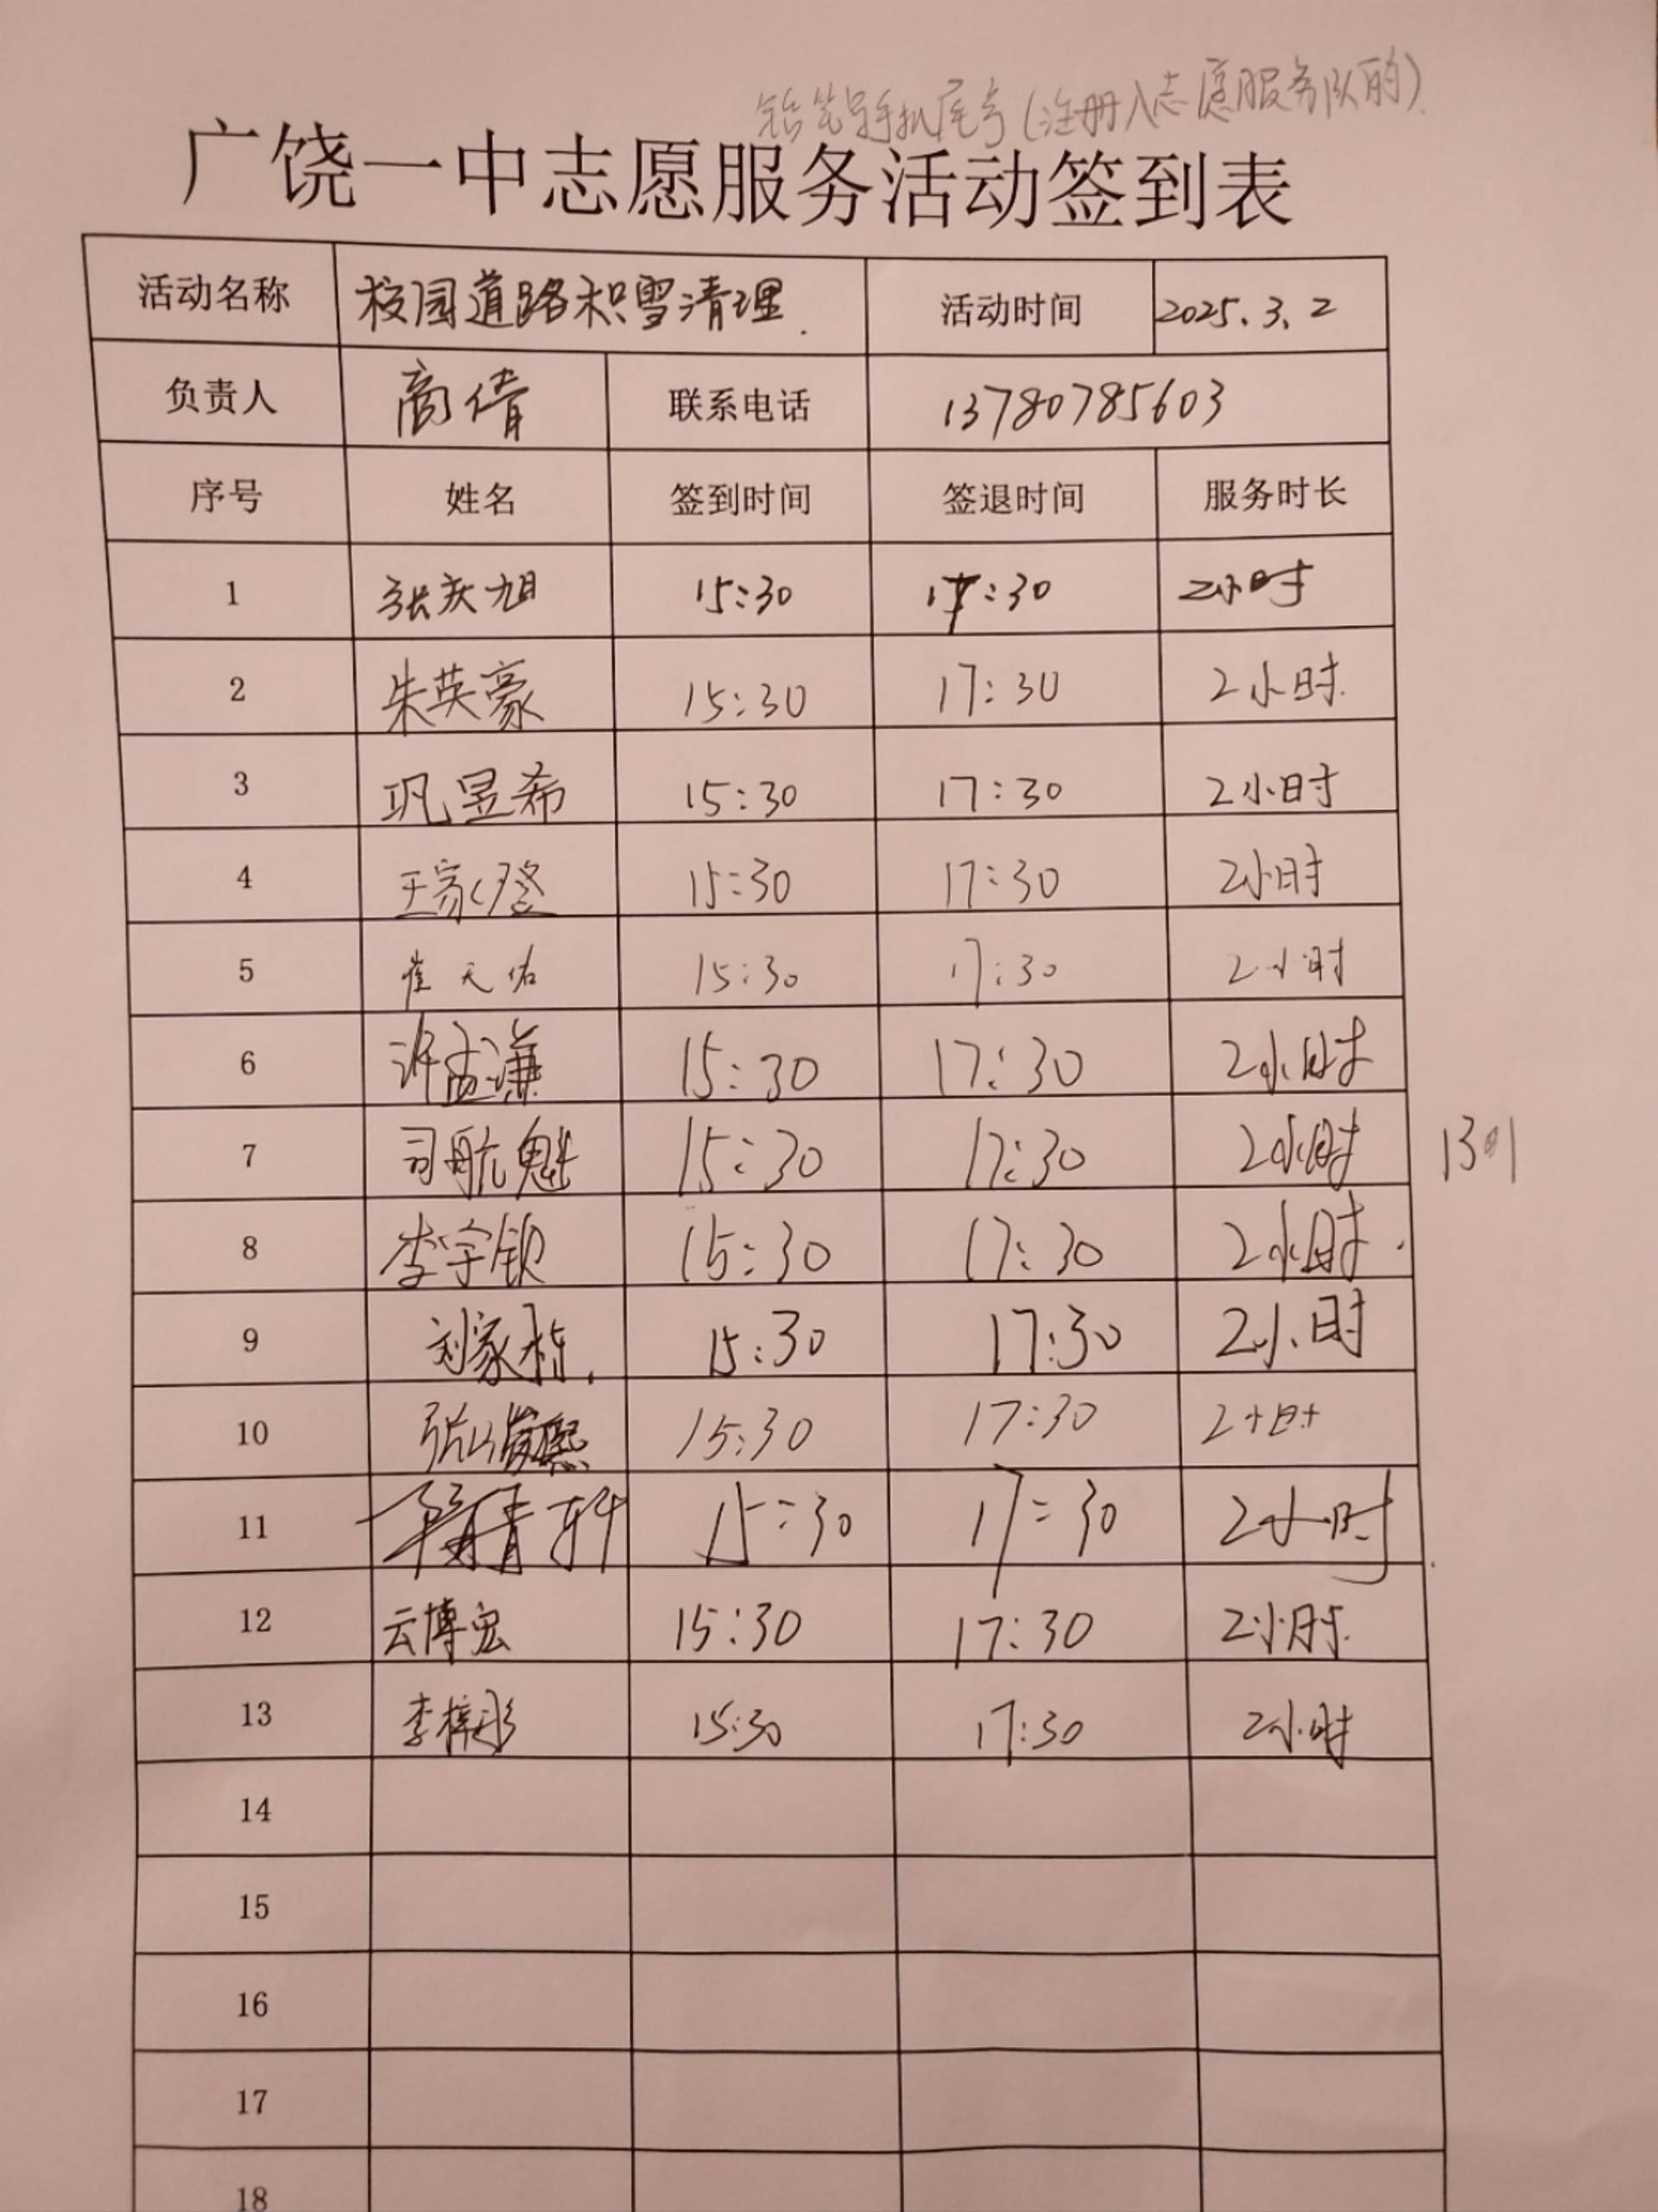 铅笔是手机尾号(注册入志愿服务队的)
广饶一中志愿服务活动签到表
活动名称 校园道路积雪清理. 活动时间 2025.3.2
负责人 商倩 联系电话 13780785603
序号 姓名 签到时间 签退时间 服务时长
1 张庆旭 15:30 17:30 2小时
2 朱英豪 15:30 17:30 2小时.
3 巩昱希 15:30 17:30 2小时
4 王家 15:30 17:30 2小时
5 崔天佑 15:30 17:30 2小时
6 许孟谦 15:30 17:30 2小时
7 司航魁 15:30 17:30 2小时
8 李宇钦 15:30 17:30 2小时.
9 刘家栋. 15:30 17:30 2小时
10 张 15:30 17:30
11 15:30 17:30 2小时
12 云博宏 15:30 17:30 2小时.
13 李梓彤 15:30 17:30 2小时
14
15
16
17
18